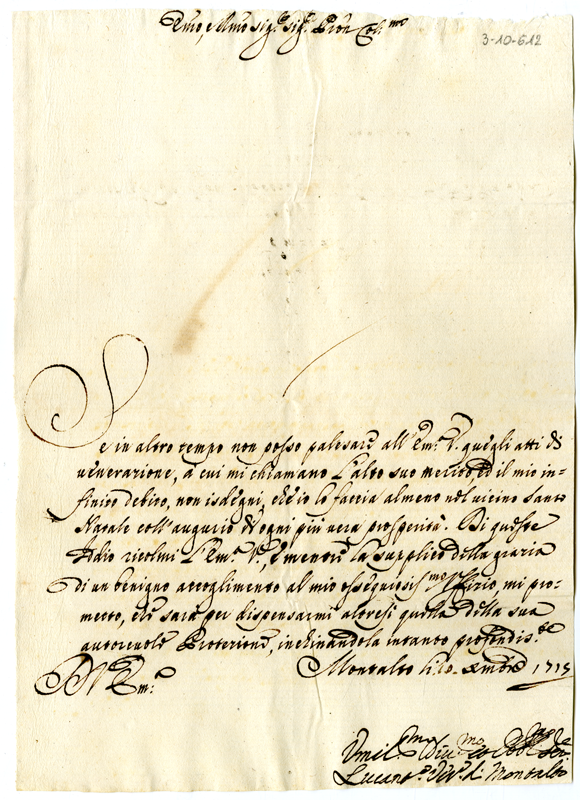 Emo, e Rmo Sig.r Sig.r Pron Col.mo
3-10-612
Se in altro tempo non posso palesare all'Em.a V. quegli atti di
venerazione, a cui mi chiamano l'alto suo merito, ed il mio in-
finito debito, non isdegni, che io lo faccia almeno nel vicino santo
Natale coll'augurio d'ogni più vera prosperità. Di queste
Iddio ricolmi l'Em.a V.a, e mentre la supplico della grazia
di un benigno accoglimento al mio ossequiosis.mo Uffizio, mi pro-
metto, che sarà per dispensarmi altresì quella della sua
autorevole Protezione, inchinandola intanto profondis.te
Di V. Em.a
Montalto li 10. Xmbre 1715
Umil.mo Div.mo et
Lucant.o Ves.o di Montalto